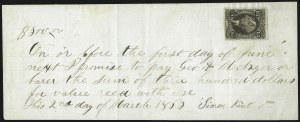 $300
On or before the first day of June
next I promise to pay Geo. H. Metzger or
barer the sum of three hundred dollars
for value recd with use
this 2nd day of March 1863